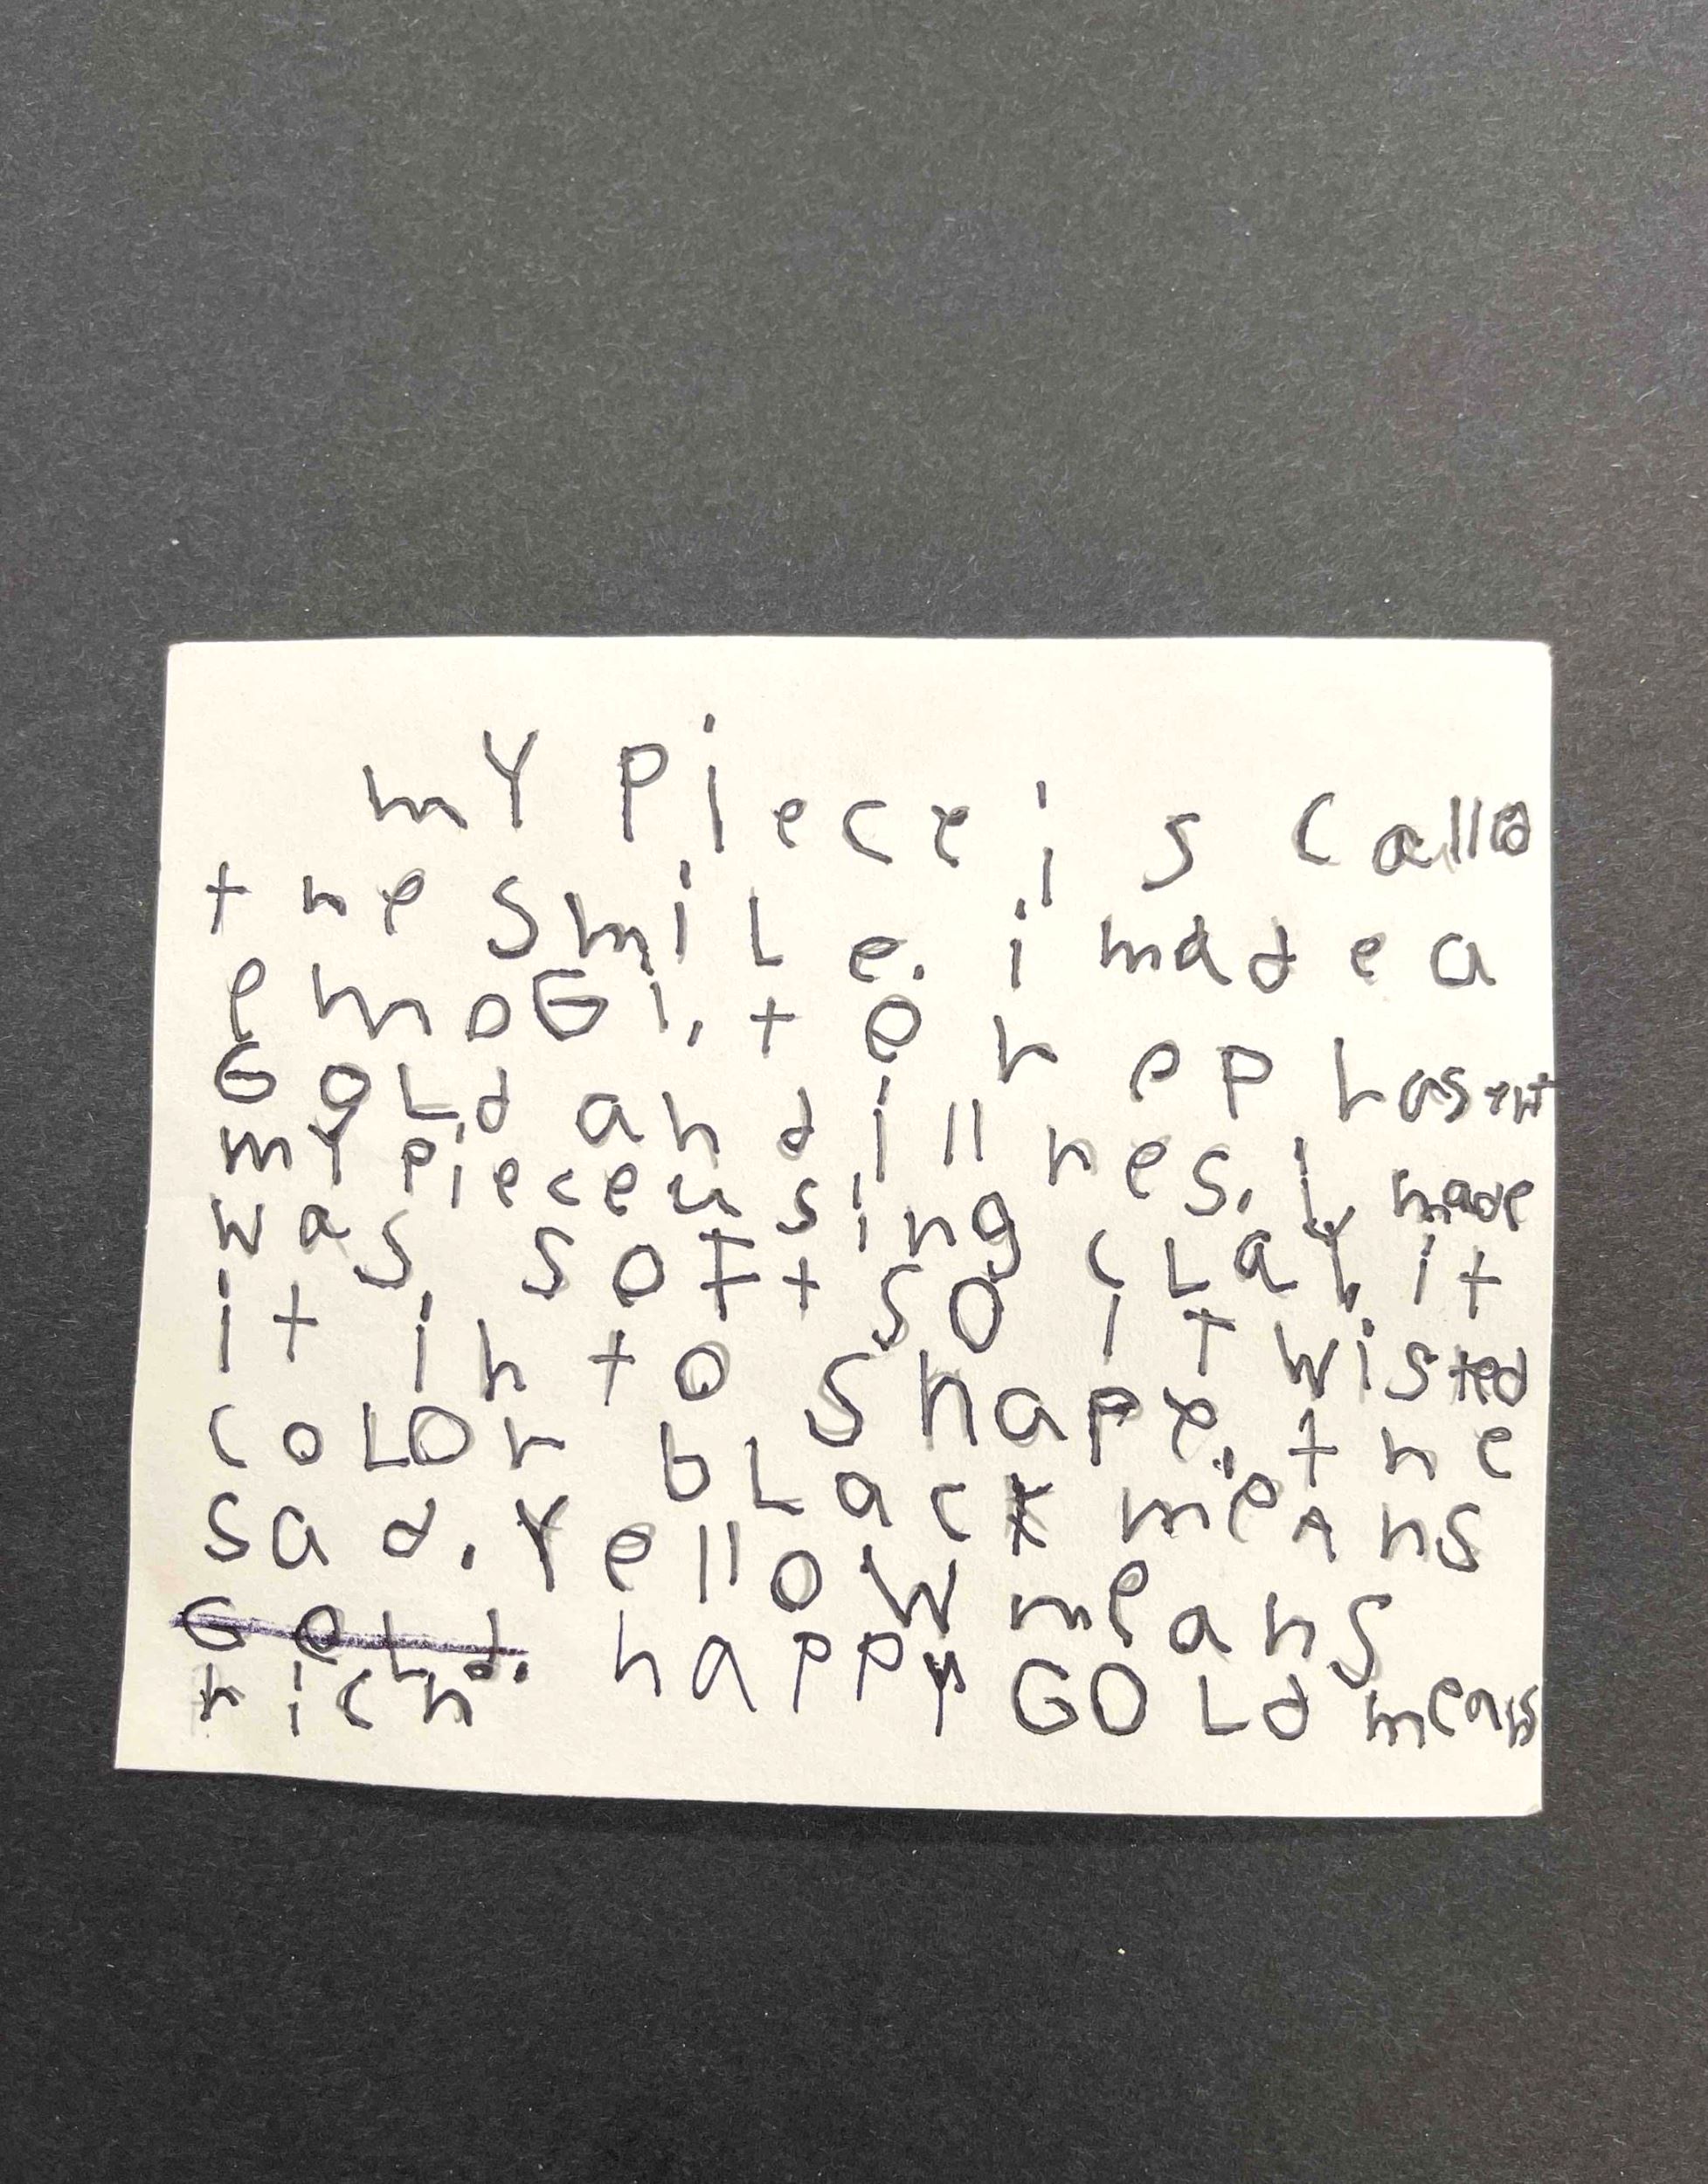 mY piece is called
the SmiLe. i made a
emoGi, to reprasent
GoLd and illnes. I made
mY piece using cLaY. it
was soft so i twisted
it into shape. the
coLOr bLack means
sad. Yellow means
GoLd. happy GOLd means
rich